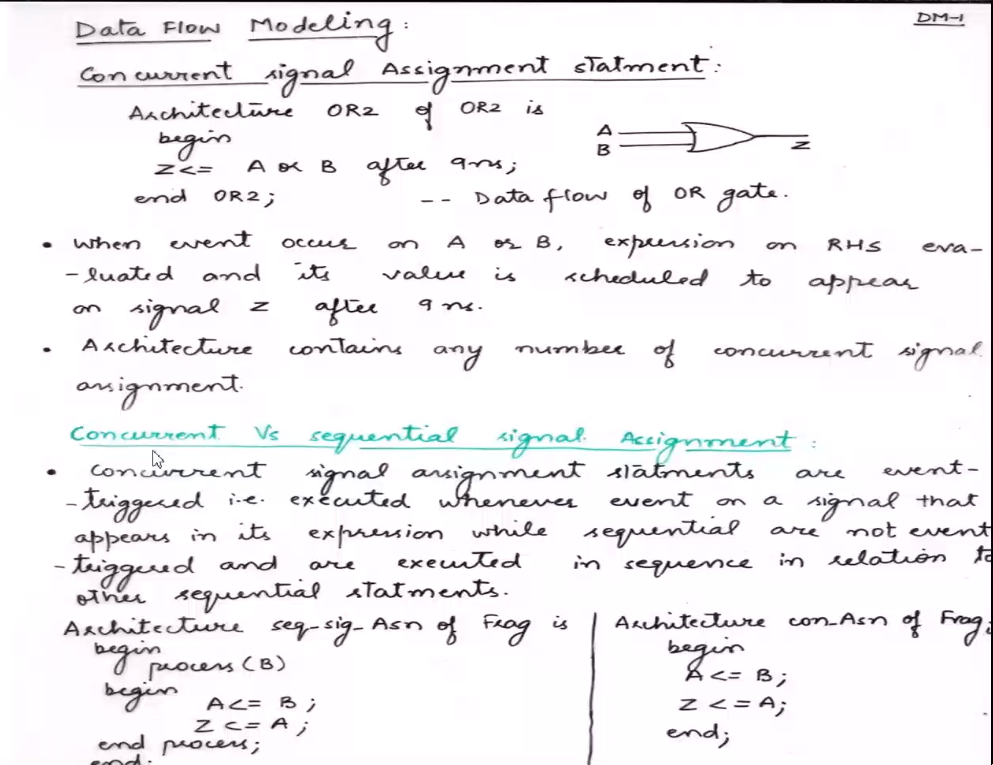 DM-1
Data Flow Modeling:
Concurrent signal Assignment statment:
Architecture OR2 of OR2 is
begin
Z<= A or B after 9ns;
end OR2; -- Data flow of OR gate.
A
B
Z
• When event occur on A or B, expression on RHS eva-
-luated and its value is scheduled to appear
on signal Z after 9 ns.
• Architecture contains any number of concurrent signal
assignment.
Concurrent Vs sequential signal Assignment:
• Concurrent signal assignment statments are event-
-triggered i.e. executed whenever event on a signal that
appears in its expression while sequential are not event
-triggered and are executed in sequence in relation to
other sequential statments.
Architecture seq-sig-Asn of Frag is
begin
process (B)
begin
A<= B;
Z<= A;
end process;
end;
Architecture con-Asn of Frag;
begin
A<= B;
Z<=A;
end;